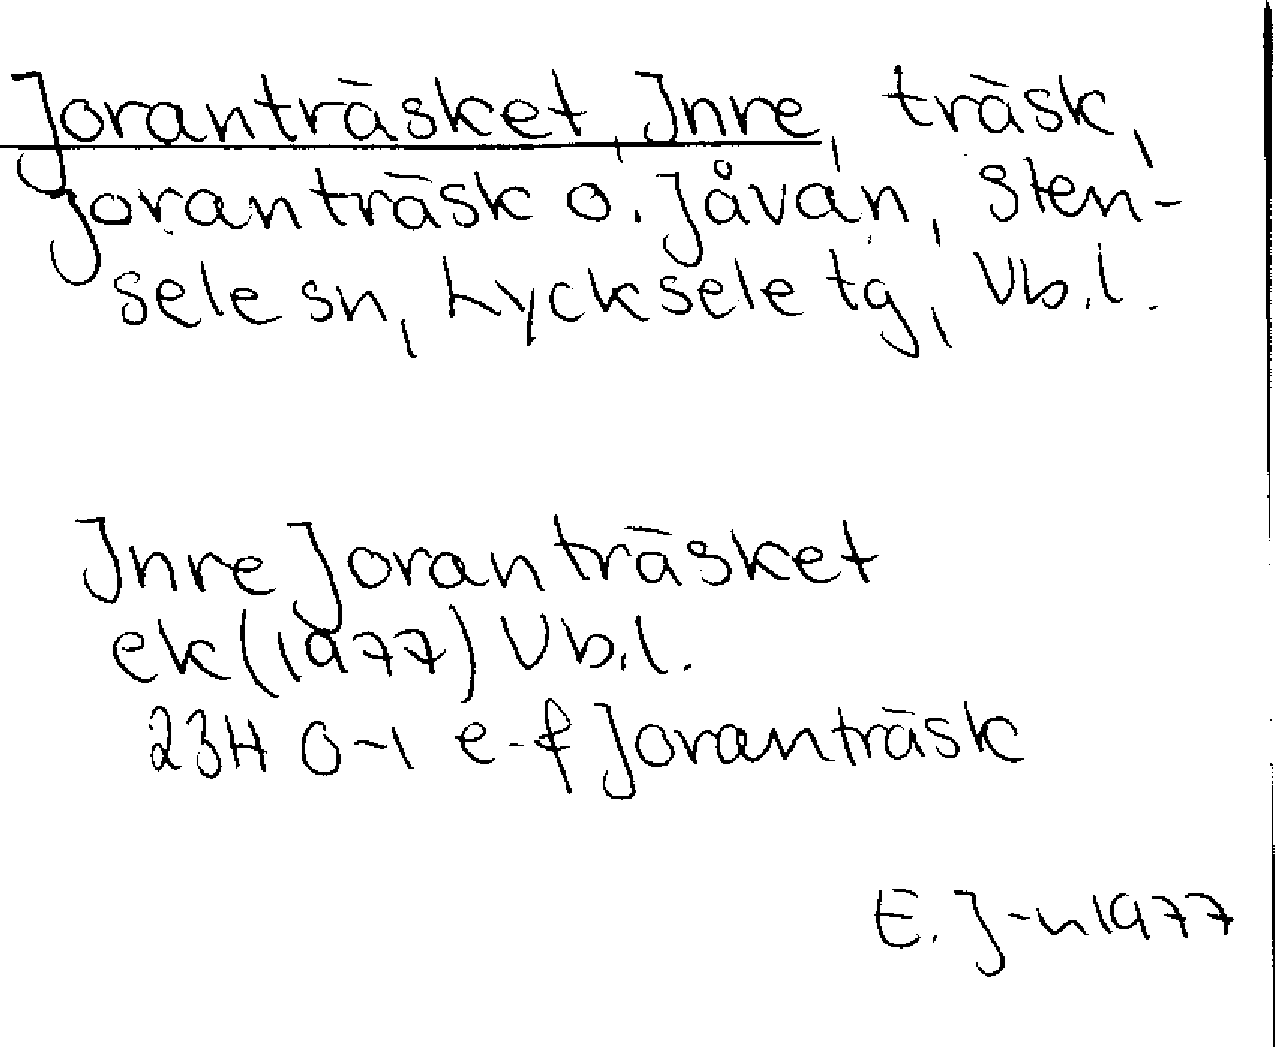 Joranträsket, Inre, träsk,
Joranträsk o. Jåván, Sten-
sele sn, Lycksele tg, Vb.l.
Inre Joranträsket
ek(1977) Vb.l.
23H 0-1 e-f Joranträsk
E. J-n 1977